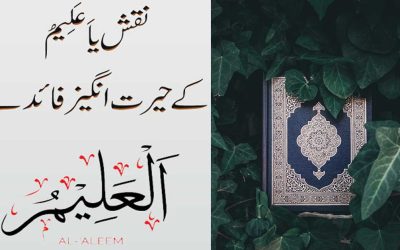 نقش یا عَلِیمُ
کے حیرت انگیز فائدے
اَلْعَلِيْمُ
AL-ALEEM